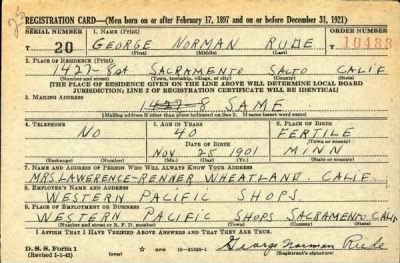 REGISTRATION CARD—(Men born on or after February 17, 1897 and on or before December 31, 1921)
SERIAL NUMBER 1. NAME (Print) ORDER NUMBER
T 20 GEORGE NORMAN RUDE 10488
(First) (Middle) (Last)
2. PLACE OF RESIDENCE (Print)
1427- SACRAMENTO SACTO CALIF
(Number and street) (Town, township, village, or city) (County) (State)
[THE PLACE OF RESIDENCE GIVEN ON THE LINE ABOVE WILL DETERMINE LOCAL BOARD
JURISDICTION; LINE 2 OF REGISTRATION CERTIFICATE WILL BE IDENTICAL]
3. MAILING ADDRESS
1427-8 SAME
[Mailing address if other than place indicated on line 2. If same insert word same]
4. TELEPHONE 5. AGE IN YEARS 6. PLACE OF BIRTH
NO 40 FERTILE
DATE OF BIRTH (Town or county)
NOV 25 1901 MINN
(Exchange) (Number) (Mo.) (Day) (Yr.) (State or country)
7. NAME AND ADDRESS OF PERSON WHO WILL ALWAYS KNOW YOUR ADDRESS
MRS LAWRENCE-RENNER WHEATLAND. CALIF.
8. EMPLOYER'S NAME AND ADDRESS
WESTERN PACIFIC SHOPS.
9. PLACE OF EMPLOYMENT OR BUSINESS
WESTERN PACIFIC SHOPS SACRAMENTO CALIF
(Number and street or R. F. D. number) (Town) (County) (State)
I AFFIRM THAT I HAVE VERIFIED ABOVE ANSWERS AND THAT THEY ARE TRUE.
D. S. S. Form 1
(Revised 1-1-42) (over) George Norman Rude
(Registrant's signature)